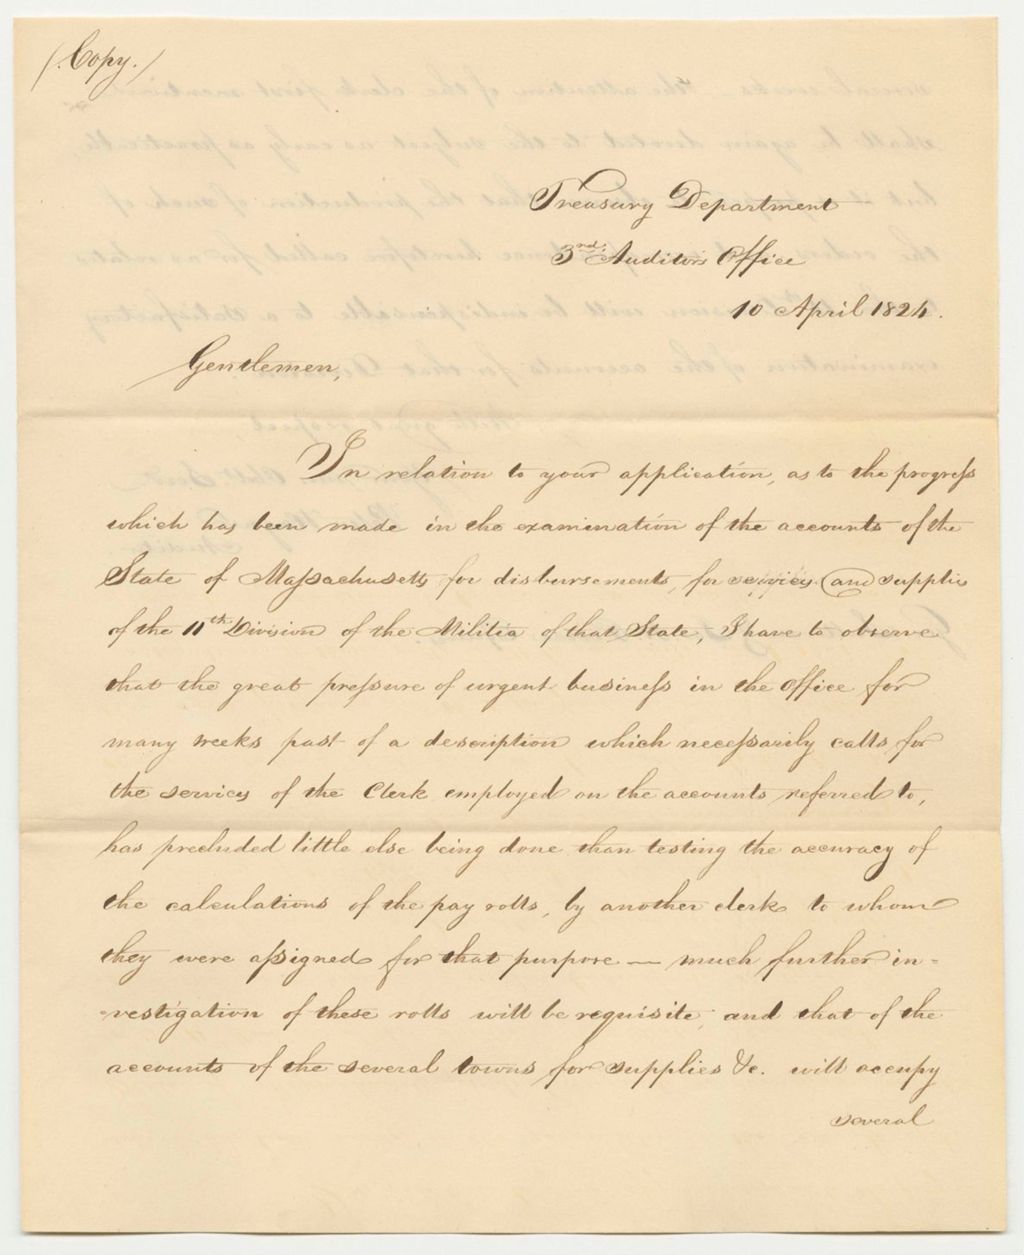 (Copy.)
Treasury Department
3rd. Auditor's Office
10 April 1824.
Gentlemen,
In relation to your application, as to the progress
which has been made in the examination of the accounts of the
State of Massachusetts for disbursements, for services and supplies
of the 11th Division of the Militia of that State, I have to observe
that the great pressure of urgent business in the office for
many weeks past of a description which necessarily calls for
the services of the Clerk employed on the accounts referred to,
has precluded little else being done than testing the accuracy of
the calculations of the pay rolls, by another clerk to whom
they were assigned for that purpose — much further in=
=vestigation of these rolls will be requisite, and that of the
accounts of the several towns for supplies &c. will occupy
several